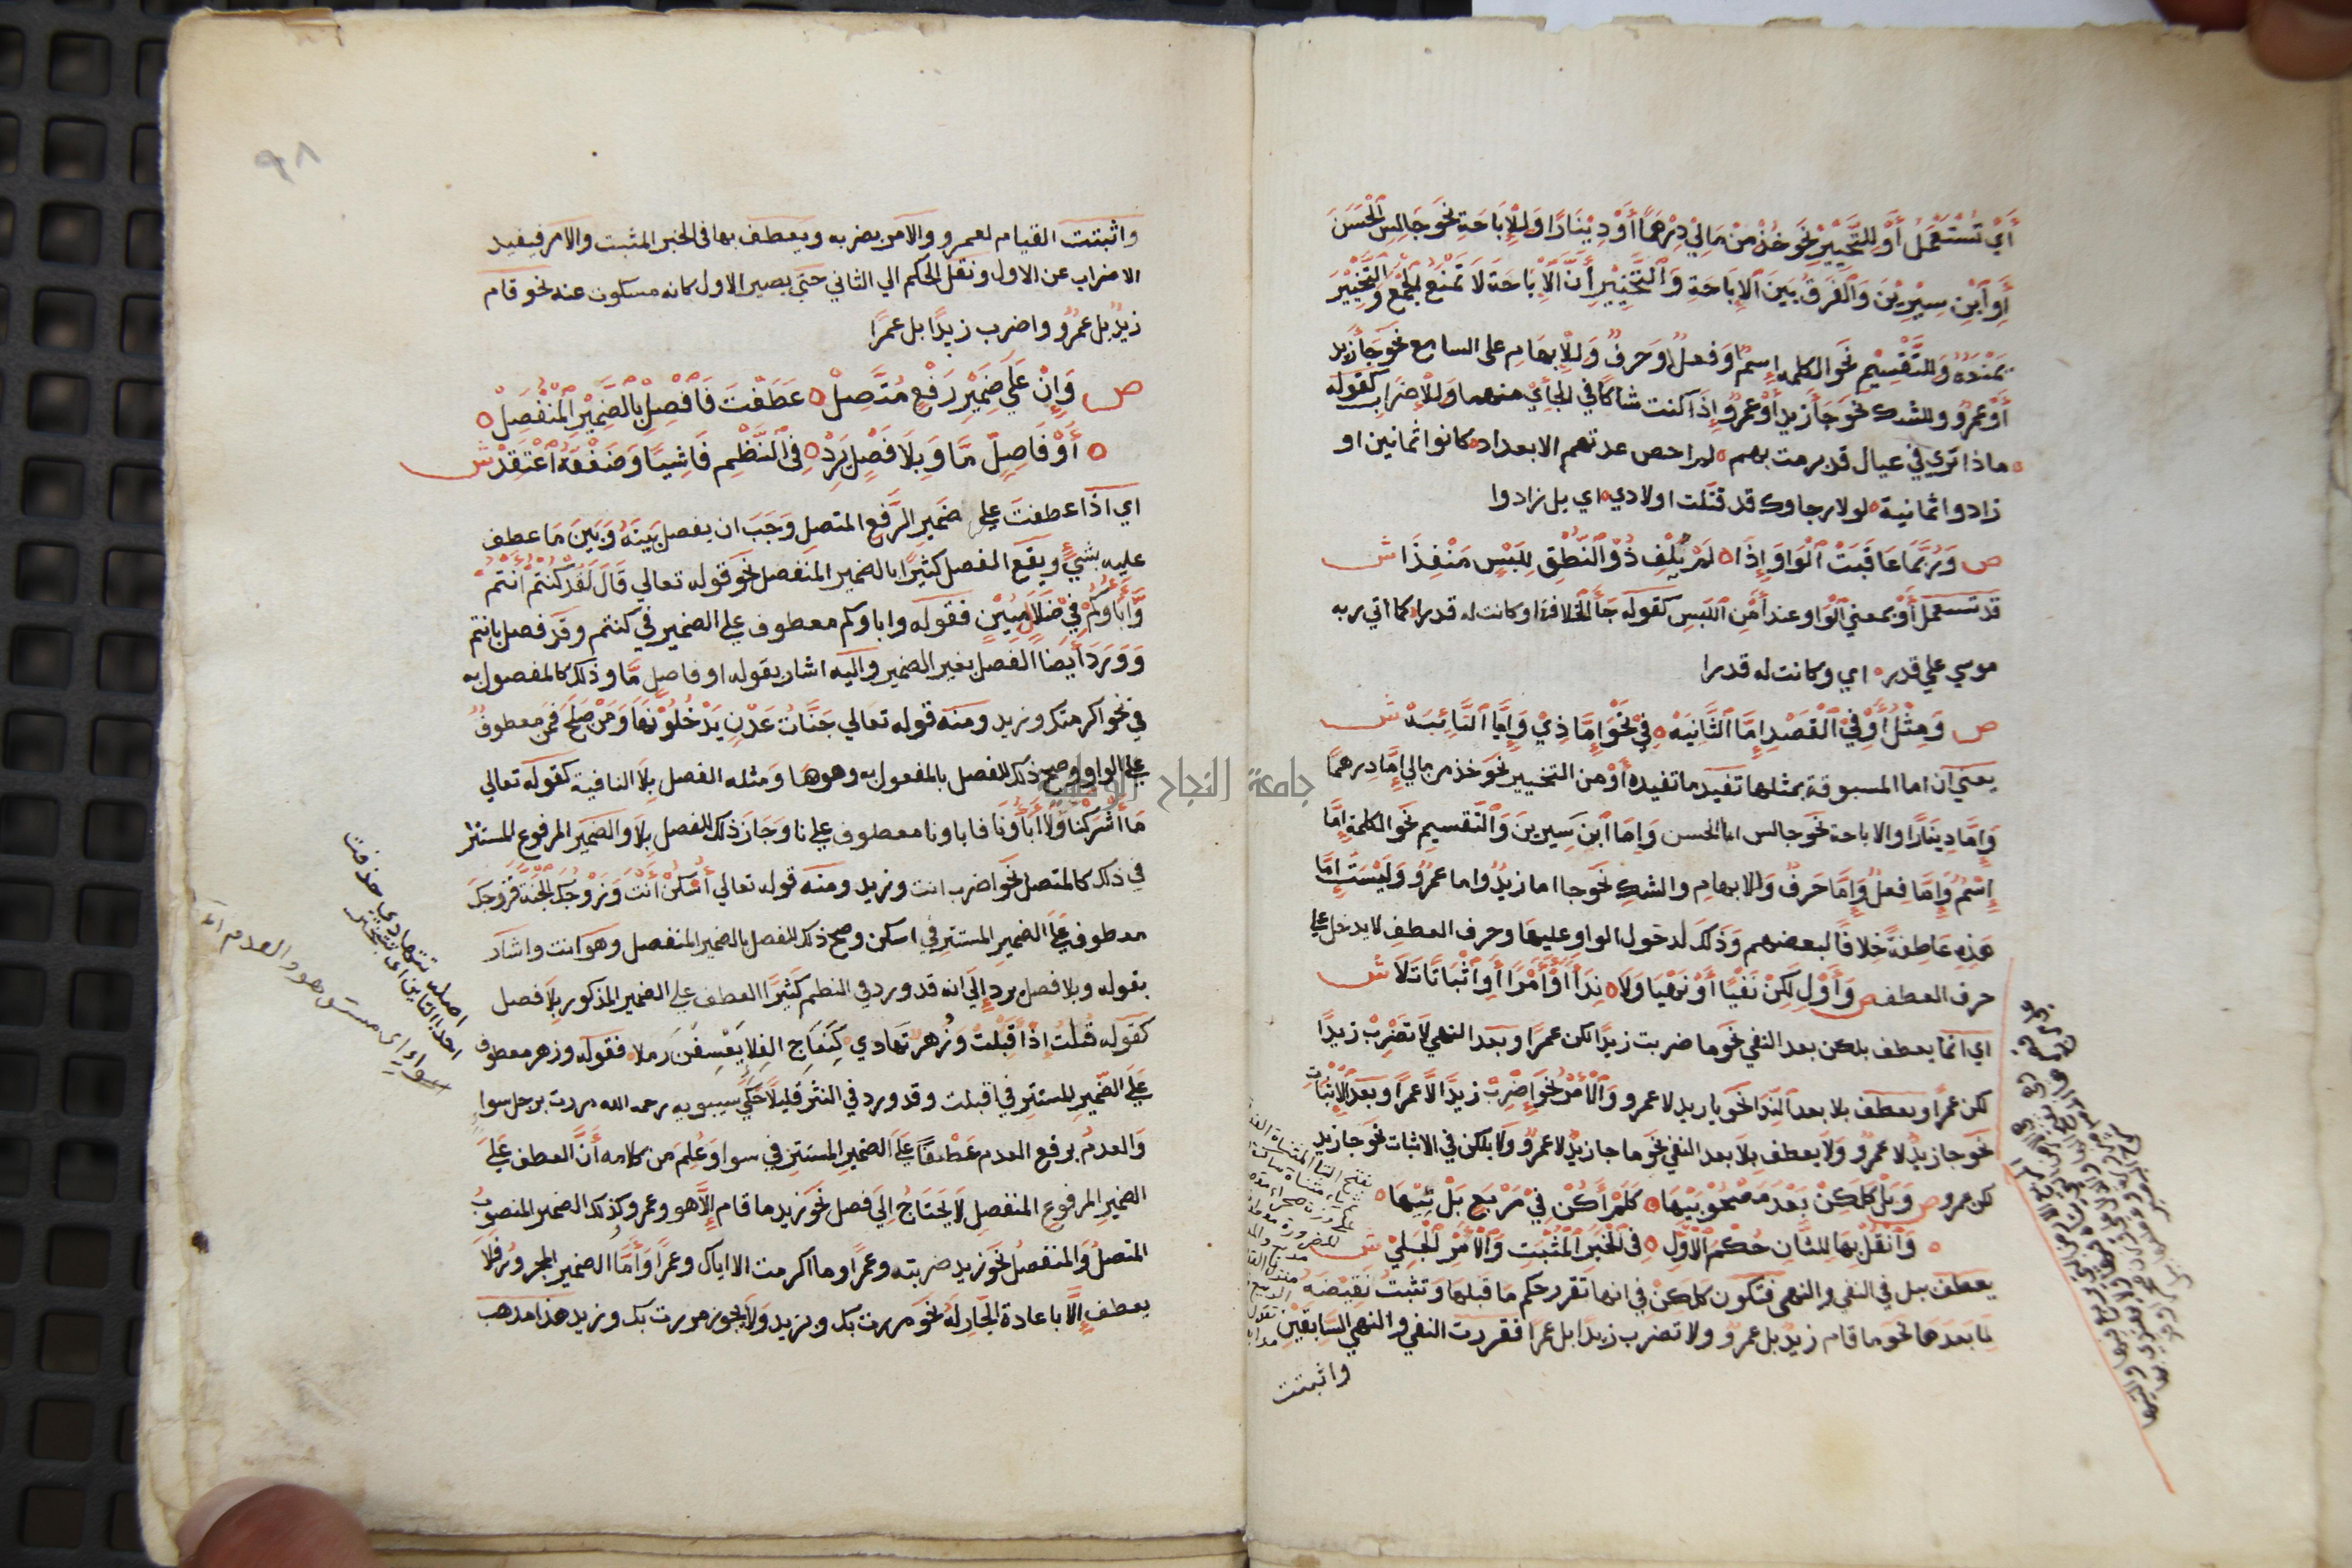 أَيْ تُسْتَعْمَلُ أَوْ لِلتَّخْيِيْرِ نَحْوَ خُذْ مِنْ مَالِيْ دِرْهَمًا أَوْ دِيْنَارًا وَلِلْإِبَاحَةِ نَحْوَ جَالِسِ الْحَسَنَ
أَوِ ابْنِ سِيْرِيْنَ وَالْفَرْقُ بَيْنَ الْإِبَاحَةِ وَالتَّخْيِيْرِ أَنَّ الْإِبَاحَةَ لَا تَمْنَعُ الْجَمْعَ وَالتَّخْيِيْرَ
يَمْنَعُهُ وَلِلتَّقْسِيْمِ نَحْوَ الكلمة إِسْمٌ أَوْ فعلٌ أَوْ حَرفٌ وَلِلْإِبهَامِ على السامع نَحْوَ جَأَ زيد
أَوْ عَمْرٌو وللشك نحْوَ جَأَ زيد أَوْ عَمْرٌو إِذَا كنت شاكًا في الجَأْيِ منهما وَلِلْإِضْرَابِ كَقَولَه
ماذا تري في عيال قد برمت بهم لم احص عدتهم الا بعداد كانوا ثمانين او
زادوا ثمانية لولا رجاوك قد قتلت اولادي اي بل زادوا
ص وَرُبَّمَا عَاقَبَتْ الْوَاوَ إِذَا لَمْ يُلْفِ ذُوْ النُّطْقِ لِلَبْسٍ مَنْفِذَا ش
قد تستعمل أَوْ بمعني الْوَاو عند أَمْنِ اللبس كقوله جَأَ الْخلافة او كانت له قدرا كما اتي ربه
موسي علي قدر اي وكانت له قدرا
ص وَمِثْلُ أَوْ فِيْ الْقَصْدِ إِمَّا الثَّانِيَهْ فِيْ نَحْوِ إِمَّا ذِيْ وَإِمَّا النَّائِيَهْ ش
يعني ان اما المسبوقة بمثلها تفيد ما تفيده أَوْ من التخيير نحو خذ من مالي إِمَّا درهمًا
وَإِمَّا دِينَارًا والاباحة نحو جالس اما الحسن وَإِمَّا ابْنِ سِيرِينَ وَالتَّقسِيمِ نحو الكلمة إِمَّا
إِسْمٌ وَإِمَّا فِعلٌ وَإِمَّا حَرفٌ وَالابهامِ والشكِ نحوَ جا اما زيدٌ واما عمرٌو وَلَيْسَتْ إِمَّا
هَذِهِ عَاطِفَةً خِلَافًا لبعضهم وَذَلكَ لدخول الواو عليهَا وحرف العطف لا يدخل علي
حرف العطف ص وَأَوْلِ لَكِنْ نَفْيًا أَوْ نَهْيًا وَلَا نِدَاً أَوْ أَمْرًا أَوِ اثْبَاتًا تَلَا ش
اي انما يعطف بلكن بعد النفي نحو ما ضربت زيدًا لكن عمرًا وبعد النهي لَا تضربْ زيدًا
لكن عمرًا ويعطف بلا بعد النِّدَا نحو يا زيد لا عمرو وَالْأَمْرُ نحو إِضْرِبْ زيدًا لا عمرًا وبَعدَ الْإِثْبَاتِ
نحو جا زيدٌ لا عمرٌو وَلَا يعطف بِلَا بعد النفي نحو ما جا زيدٌ لا عمرٌو وَلَا بلكن في الاثبات نحو جا زيد
لكن عمرو ص وَبَلْ كَلَكِنْ بَعْدَ مَصْحُوْبَيْهَا كَلَمْ أَكُنْ فِيْ مَرْبَعٍ بَلْ تَيْهَا
وَانْقُلْ بِهَا لِلثَّانِ حُكْمَ الْأَوَّلِ فِى الْخَبَرِ الْمُثْبَتِ وَالْأَمْرِ الْجَلِيْ ش
يعطف ببل في النفي والنهي فتكون كَلَكِنْ في انها تقرر حكم مَا قبلها وَتثبتُ نَقِيْضَه
لِمَا بَعدَهَا نحو ما قام زيدٌ بل عمرٌو ولا تضرب زيدًا بل عمرًا فقررت النفي والنهي السَابِقَيْنِ
واثبتت
٩٨
واثبتت القيام لعمرو والامر بضربه ويعطف بها في الخبر المثبت والامر فيفيد
الاضراب عن الاول ونقل الحكم الي الثاني حتي يصير الاول كانه مسكوت عنه نحو قام
زيدٌ بل عمرٌو واضرب زيدًا بل عمرًا
ص وَإِنْ عَلَيْ ضَمِيْرِ رَفْعٍ مُتَّصِلْ عَطَفْتَ فَافْصِلْ بِالضَّمِيْرِ الْمُنْفَصِلْ
أَوْ فَاصِلٍ مَّا وَبِلَا فَصْلٍ يَرِدْ فِي النَّظْمِ فَاشِيًا وَضَعْفَهُ اعْتَقِدْ ش
اي اذا عطفت علي ضميرِ الرَّفعِ المتصلِ وَجَبَ ان يفصل بَيْنَهُ وَبَيْنَ مَا عطف
عليه بشيءٍ ويقع الفصل كثيرًا بالضمير المنفصل نحو قوله تعالي قَالَ لَقَدْ كُنْتُمْ أَنْتُمْ
وَأَبَاؤُكُمْ فِيْ ضَلَالٍ مُبِيْنٍ فقوله واباوكم معطوف علي الضمير في كنتم وقد فصل بانتم
وَوَرَدَ أَيْضًا الفصل بغير الضمير واليه اشار بقوله او فاصل مَّا وذلك كالمفصول به
في نحو اكرمتك وزيد ومنه قوله تعالي جَنَّاتُ عَدْنٍ يَدْخُلُوْنَهَا وَمَنْ صَلَحَ فَمَنْ معطوفٌ
علي الواو وصح ذلك للفصل بالمفعول به وهو هَا وَمثله الفصل بِلَا النافية كقوله تعالي
مَا أَشْرَكْنَا وَلَا أَبَاؤُنَا فاباونا معطوف علي نا وَجَازَ ذلك للفصل بِلَا والضمير المرفوع المستتر
في ذلك كالمتصل نحو اضرب انت وزيد ومنه قوله تعالي أُسْكُنْ أَنْتَ وَزَوْجُكَ الْجَنَّةَ فَزَوجكَ
معطوف عَلَى الضميرِ المستترِ في اسكن وصح ذلك للفصل بالضمير المنفصل وهو انت واشار
بقوله وبلا فصل يرد إِلَى انه قد ورد في النظم كَثِيرًا العطف علي الضمير المذكور بِلَا فصل
كقوله قُلتُ إِذْ اقْبَلَتْ وَزُهرٌ تهادي كَنِعَاجِ الفِلَا تَعَسَّفْنَ رملا فقوله وزهر معطوف
عَلَى الضميرِ المستترِ في اقبلت وقد ورد في النثر قليلًا حَكَى سيبويه رحمه الله مررت برجل سوا
وَالعدمُ برفع العدم عَطْفًا عَلَى الضميرِ المستترِ في سوا وَعُلِمَ من كلامه أَنَّ العطف عَلَى
الضميرِ المرفوعِ المنفصلِ لَا يَحْتَاجُ الِيَ فصل نحو زيد ما قام إِلَّا هو وعمرو وكذلك الضمير المنصوبُ
المتصلُ وَالمنفصلُ نحو زيد ضربته وعمرًا وما اكرمت الا اياك وعمرًا وَأَمَّا الضمير المجرورُ فلا
يعطف إِلَّا باعادة الجَارِ لَهُ نحو مررت بك وبزيد وَلَا يجوز مررت بك وزيد هذا مذهب
اصله تتهادي حذفت
احدا التاين اي تتبختر
سواءٍ اي مستو هو والعدم